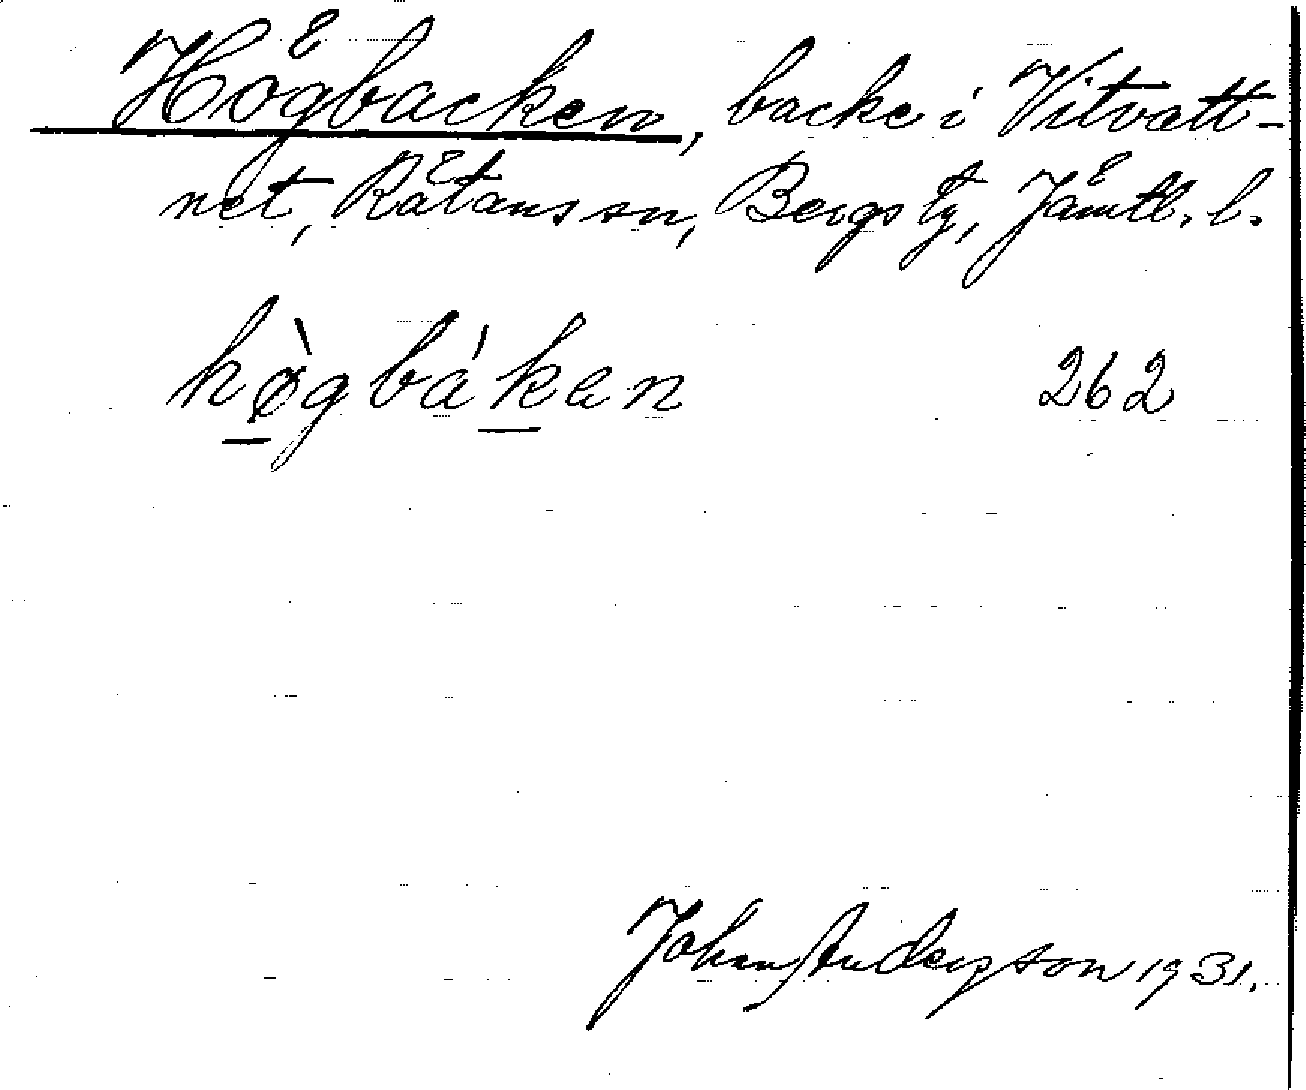 Högbacken, backe i Vitvatt-
net, Rätans sn, Bergs tg, Jämtl. l.
hø̀gbákan 262
Johan Anderson 1931.